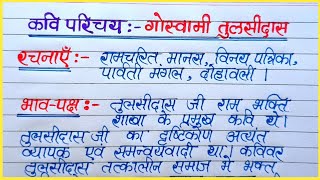 कवि परिचय :- गोस्वामी तुलसीदास
रचनाएँ :- रामचरित मानस, विनय पत्रिका,
पार्वती मंगल, दोहावली ।
भाव-पक्ष :- तुलसीदास जी राम भक्ति
शाखा के प्रमुख कवि थे।
तुलसीदास जी का दृष्टिकोण अत्यंत
व्यापक एवं समन्वयवादी था। कविवर
तुलसीदास तत्कालीन समाज में भक्त